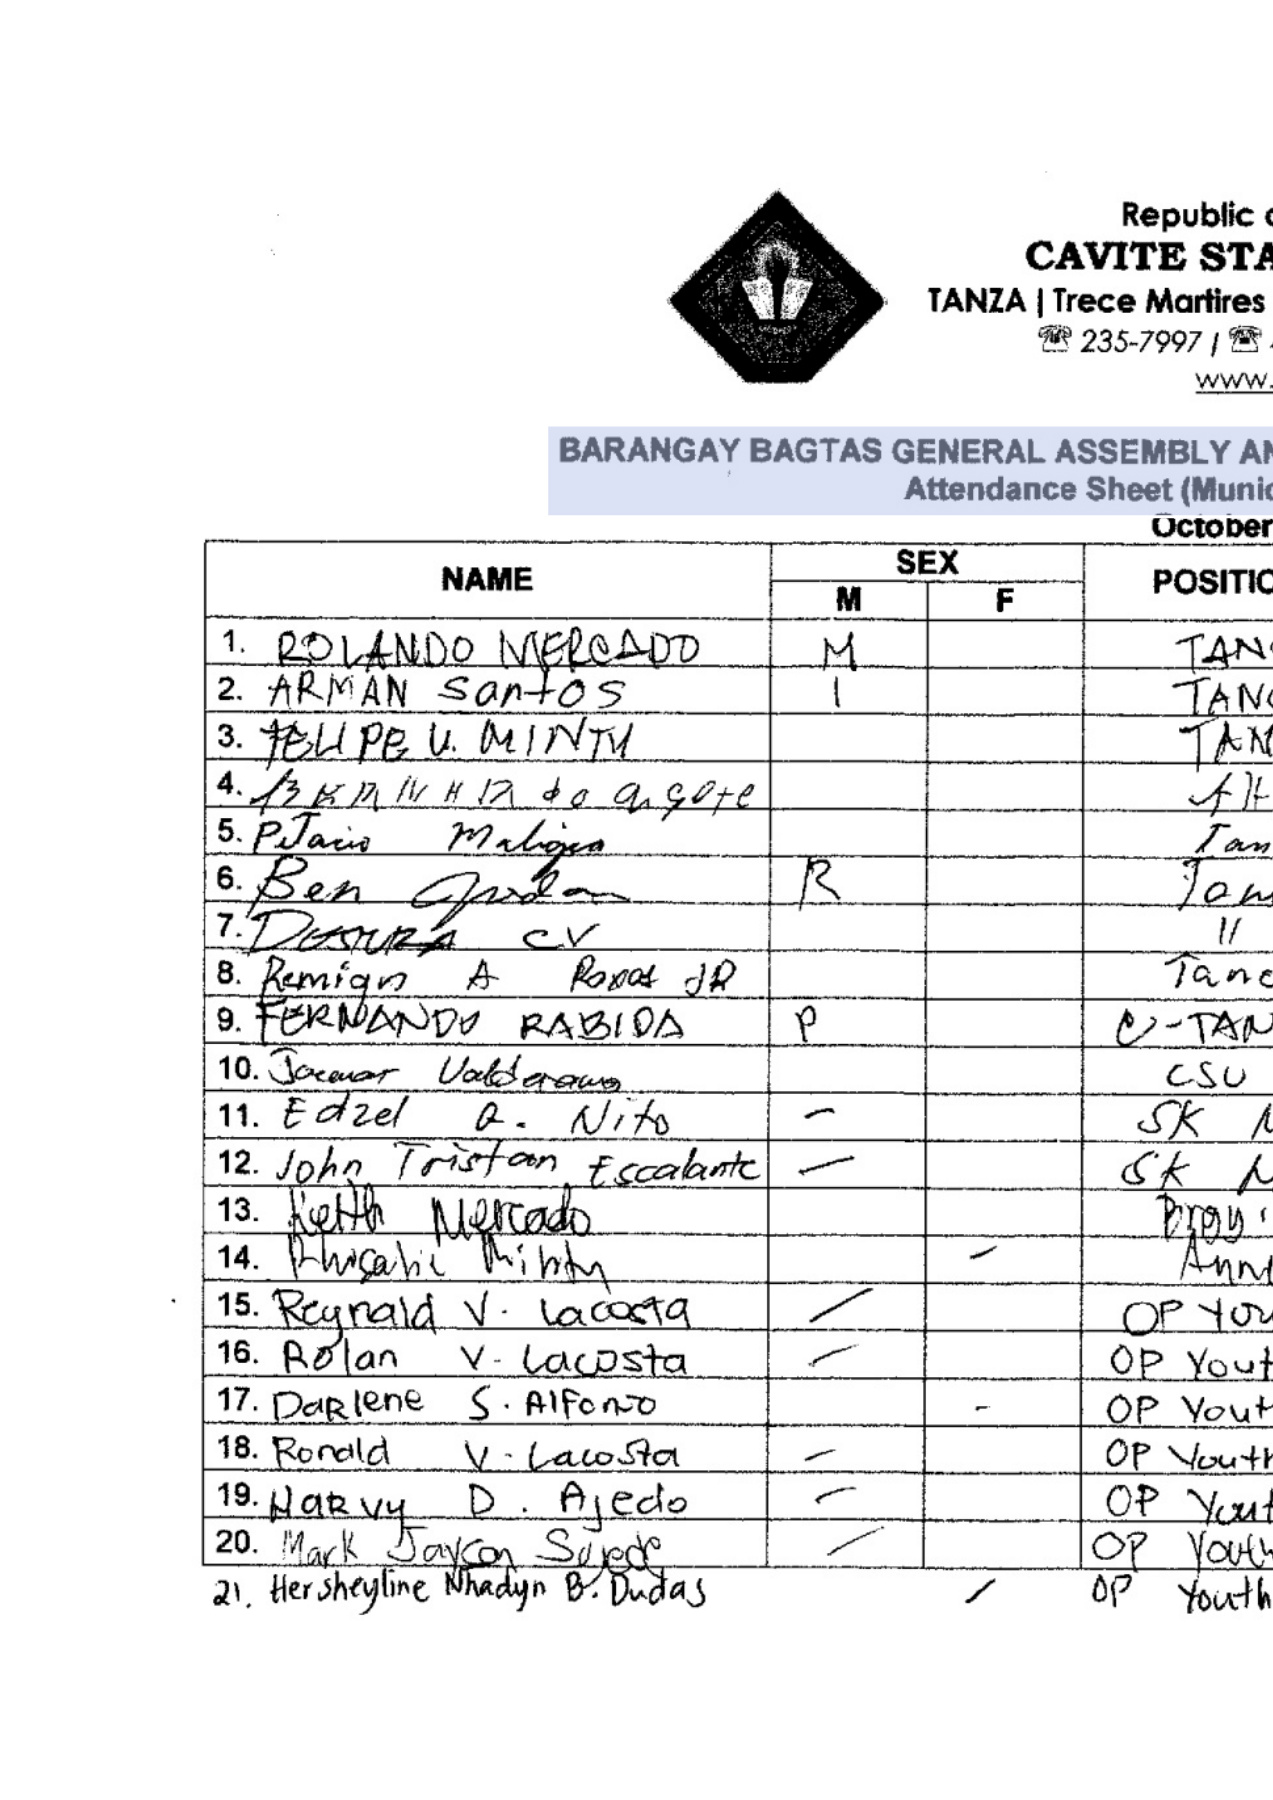 Republic
CAVITE STA
TANZA | Trece Martires
☎ 235-7997 / ☎
www.
BARANGAY BAGTAS GENERAL ASSEMBLY AN
Attendance Sheet (Munic
October
NAME SEX POSITIO
M F
1. ROLANDO MERCADO M TAN
2. ARMAN Santos I TAN
3. FELIPE V. MINTU TAN
4.
5. Maligaya Tan
6. Ben R Tan
7. CV "
8. Remigio A Roxas JR Tan
9. FERNANDO RABIDA P C-TAN
10. CSU
11. Edzel A. Nito – SK
12. John Tristan Escalante – SK
13. Keith Mercado Brgy
14. –
15. Reynald V. Lacosta / OP You
16. Rolan V. Lacosta / OP Yout
17. Darlene S. Alfonso - OP Yout
18. Ronald V. Lacosta – OP Youth
19. Harvy D. Ajedo – OP Yout
20. Mark / OP Youth
21. Hersheyline Nhadyn B. Dudas / OP Youth